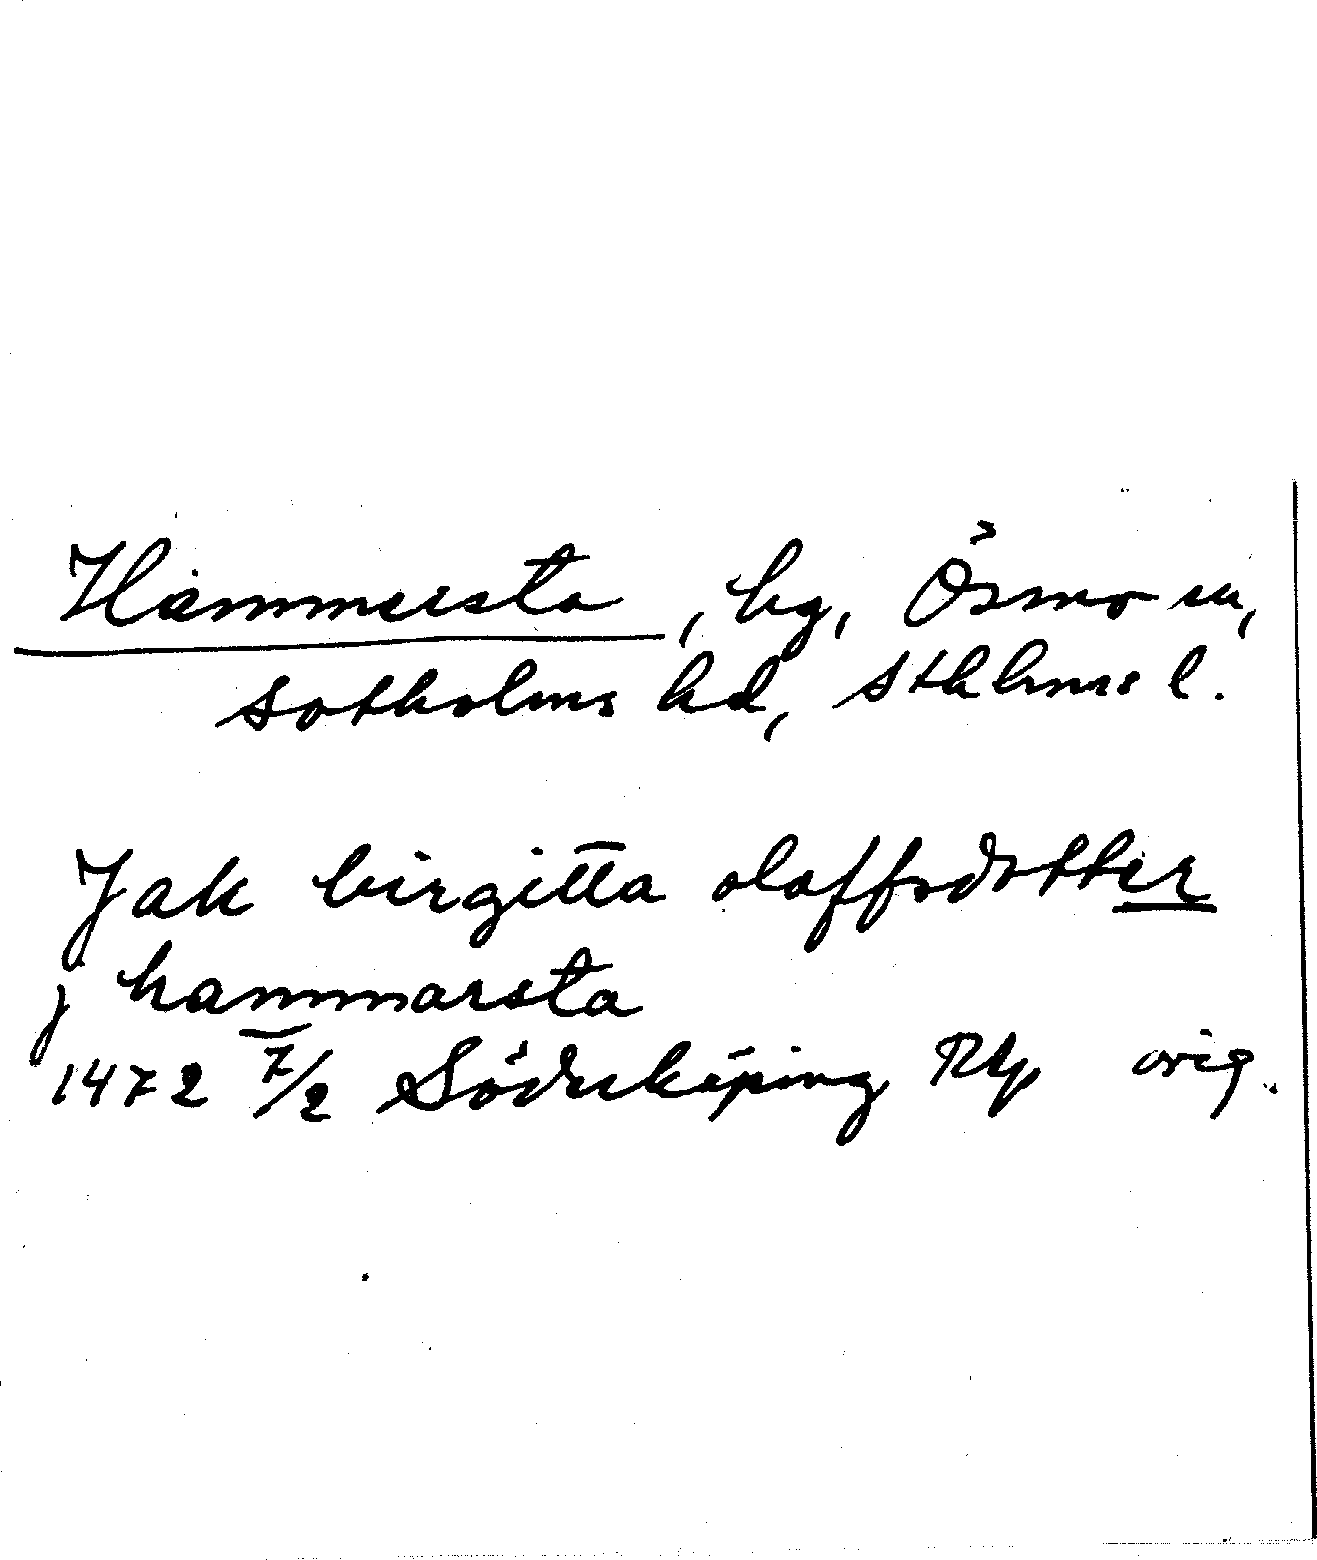 Hammersta, hg, Ösmo sn,
Sotholms hd, Sthlms l.
Jak birgitta olaffsdotter
j hammarsta
1472 7/2 Söderköping RAp orig.